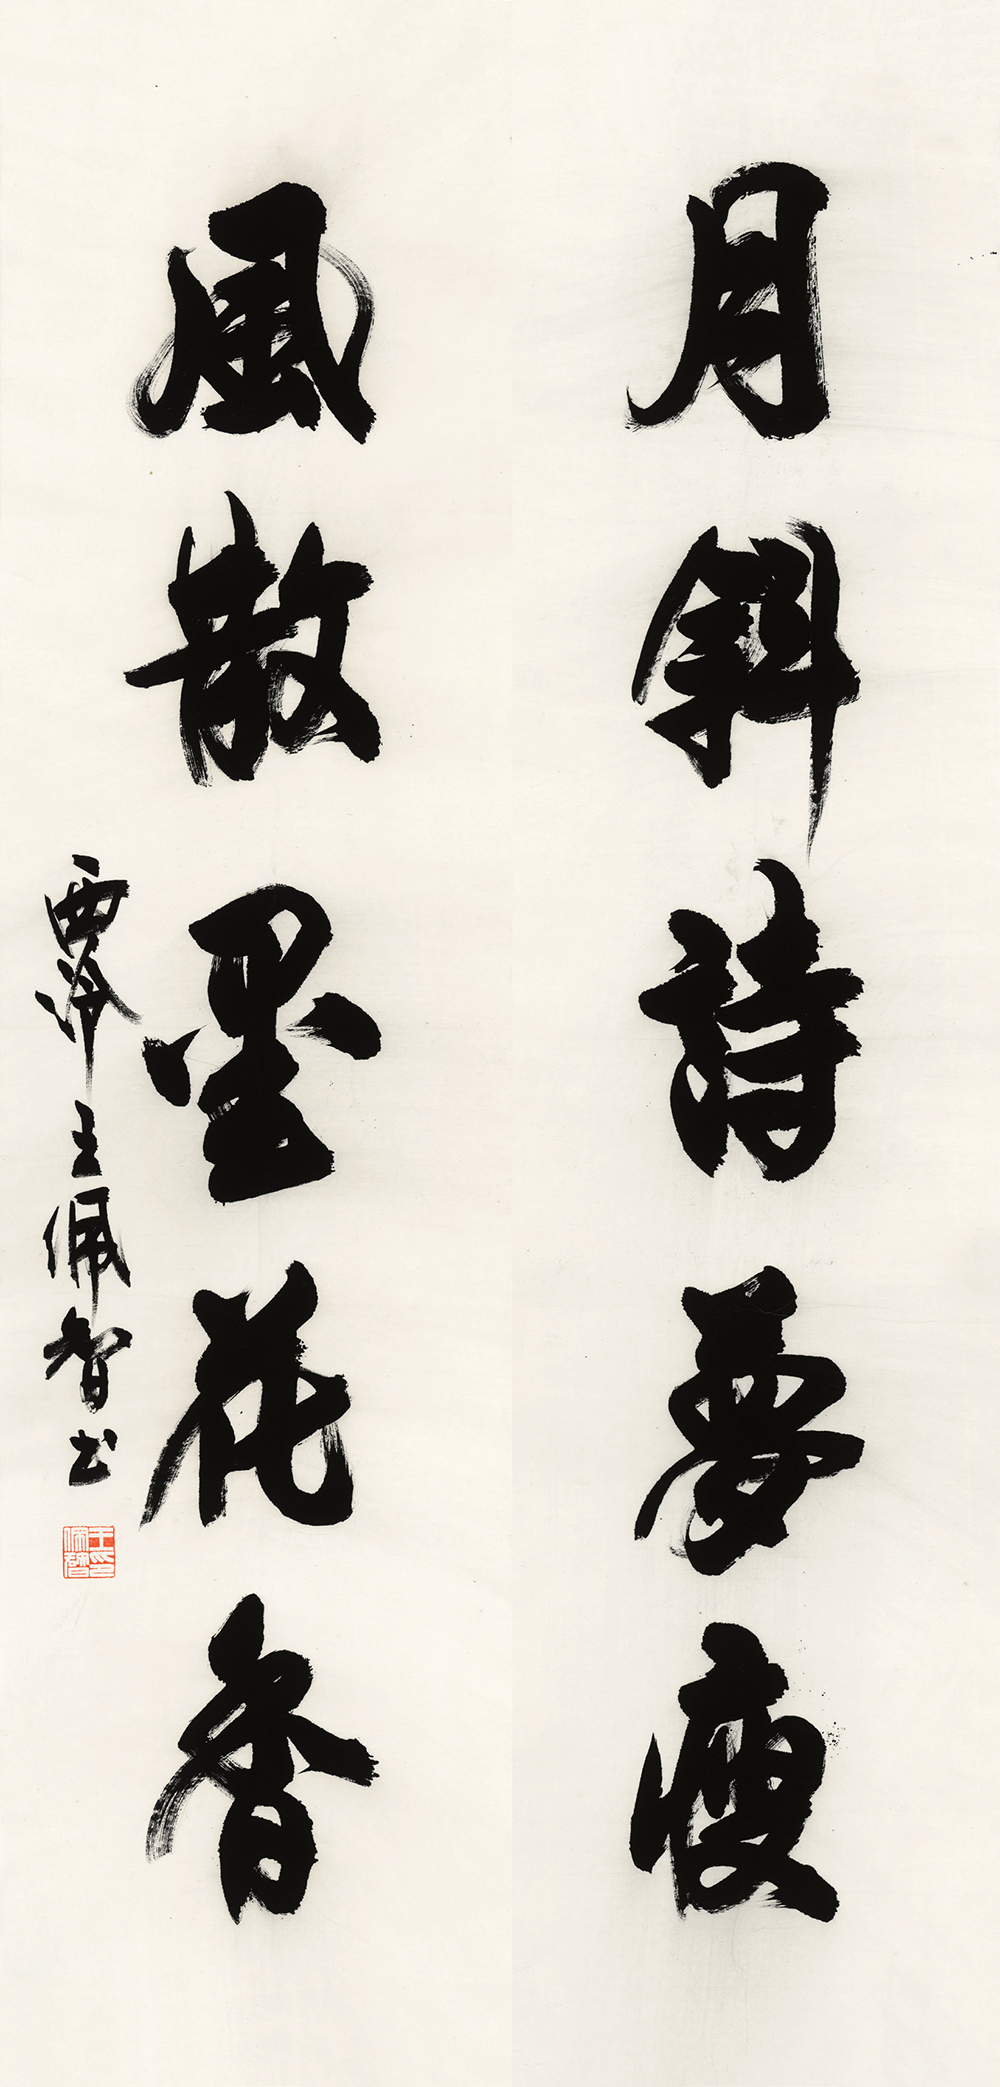 月斜詩夢瘦
風散墨花香
西泠王佩智書
王佩智印